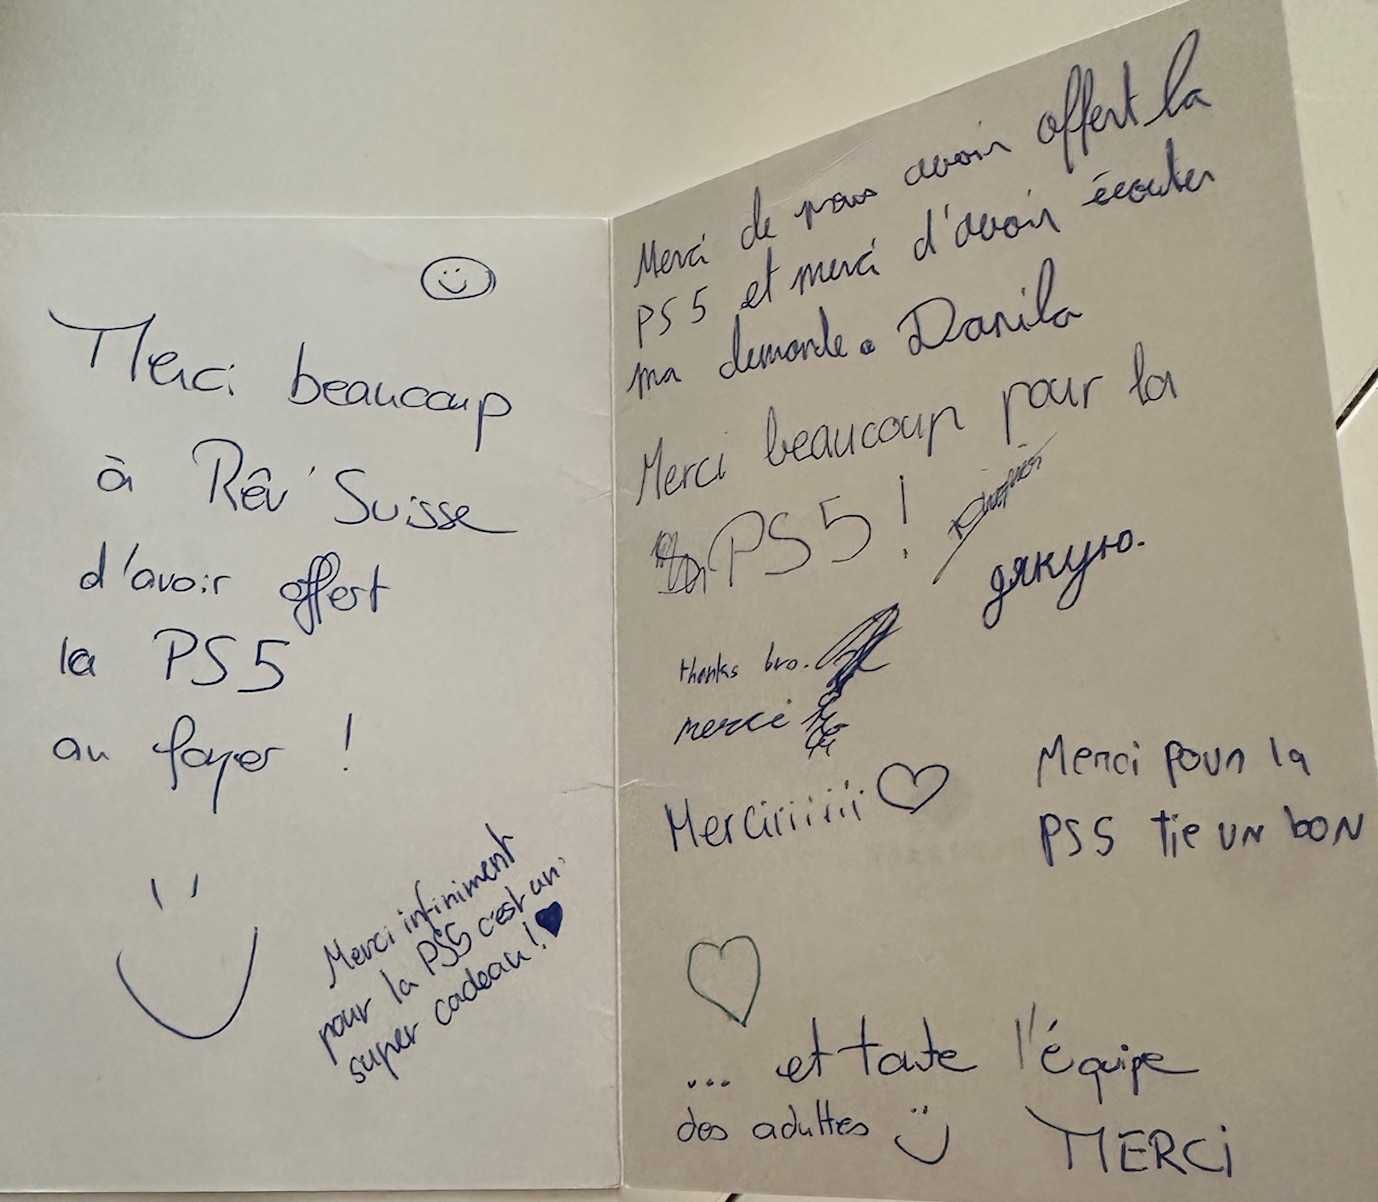 Merci beaucoup
à Rêv'Suisse
d'avoir offert
la PS5
au foyer !
Merci infiniment
pour la PS5 c'est un
super cadeau !
Merci de nous avoir offert la
PS5 et merci d'avoir écouter
ma demande. Danila
Merci beaucoup pour la
PS5 !
дякую.
thanks bro.
merci
Merciiiiiiii
Merci pour la
PS5 tie un bon
... et toute l'équipe
des adultes
MERCi